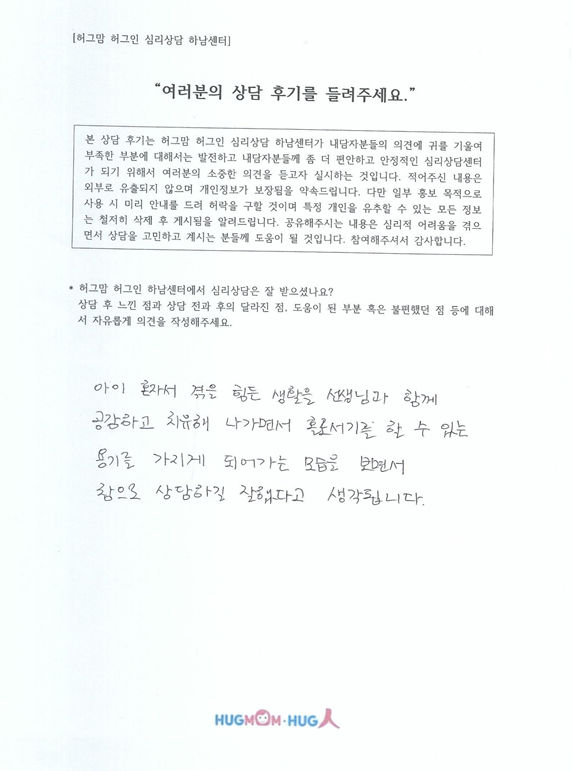 [허그맘 허그인 심리상담 하남센터]
“여러분의 상담 후기를 들려주세요.”
본 상담 후기는 허그맘 허그인 심리상담 하남센터가 내담자분들의 의견에 귀를 기울여
부족한 부분에 대해서는 발전하고 내담자분들께 좀 더 편안하고 안정적인 심리상담센터
가 되기 위해서 여러분의 소중한 의견을 듣고자 실시하는 것입니다. 적어주신 내용은
외부로 유출되지 않으며 개인정보가 보장됨을 약속드립니다. 다만 일부 홍보 목적으로
사용 시 미리 안내를 드려 허락을 구할 것이며 특정 개인을 유추할 수 있는 모든 정보
는 철저히 삭제 후 게시됨을 알려드립니다. 공유해주시는 내용은 심리적 어려움을 겪으
면서 상담을 고민하고 계시는 분들께 도움이 될 것입니다. 참여해주셔서 감사합니다.
* 허그맘 허그인 하남센터에서 심리상담은 잘 받으셨나요?
상담 후 느낀 점과 상담 전과 후의 달라진 점, 도움이 된 부분 혹은 불편했던 점 등에 대해
서 자유롭게 의견을 작성해주세요.
아이 혼자서 겪을 힘든 생활을 선생님과 함께
공감하고 치유해 나가면서 홀로서기를 할 수 있는
용기를 가지게 되어가는 모습을 보면서
참으로 상담하길 잘했다고 생각됩니다.
HUGMOM·HUG人